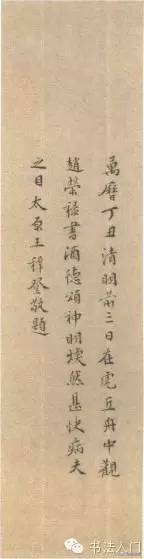 萬曆丁丑清明前三日在虎丘舟中觀
趙榮祿書酒德頌神明煥然甚快病夫
之目太原王穉登敬題
书法入门